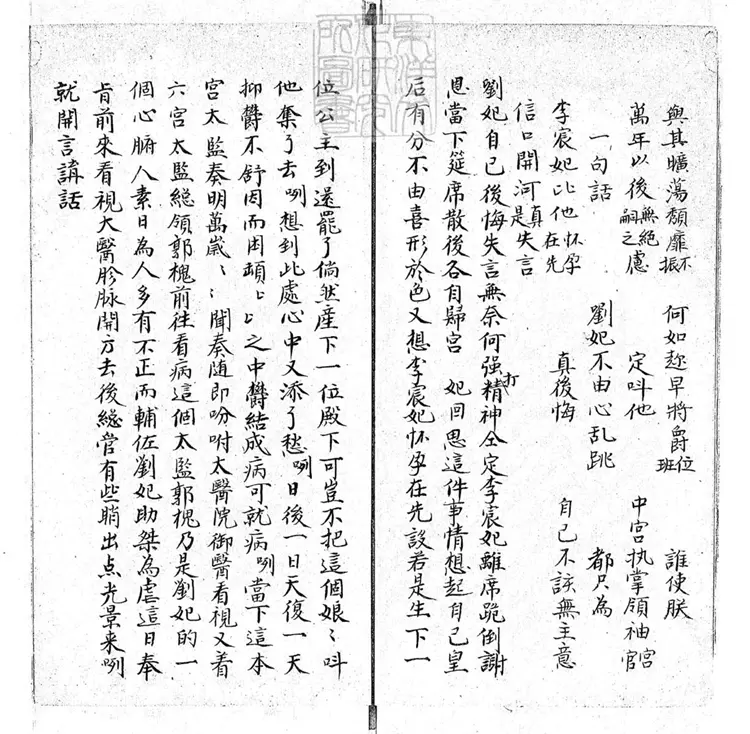 與其曠蕩頹靡不振　何如趂早將爵位班　誰使朕
萬年以後無絕嗣之慮　定叫他　中宮执掌領袖宮官
一句話　劉妃不由心乱跳　都只為
李宸妃比他怀孕在先　真後悔　自己不該無主意
信口開河真是失言
劉妃自己後悔失言無奈何强打精神仝定李宸妃離席跪倒謝
恩當下筵席散後各自歸宮　妃回思這件事情想起自己皇
后有分不由喜形於色又想李宸妃怀孕在先設若是生下一
位公主到還罷了倘然產下一位殿下可豈不把這個娘〻叫
他奪了去咧想到此處心中又添了愁咧日後一日天復一天
抑鬱不舒因而困頓〻〻之中鬱結成病可就病咧當下這本
宮太監奏明萬歲〻〻聞奏随即吩咐太醫院御醫看視又着
六宮太監総領郭槐前往看病這個太監郭槐乃是劉妃的一
個心腑人素日為人多有不正而輔佐劉妃助桀為虐這日奉
旨前來看視大醫胗脉開方去後総管有些瞧出点光景来咧
就開言講話
東洋文化研究所圖書